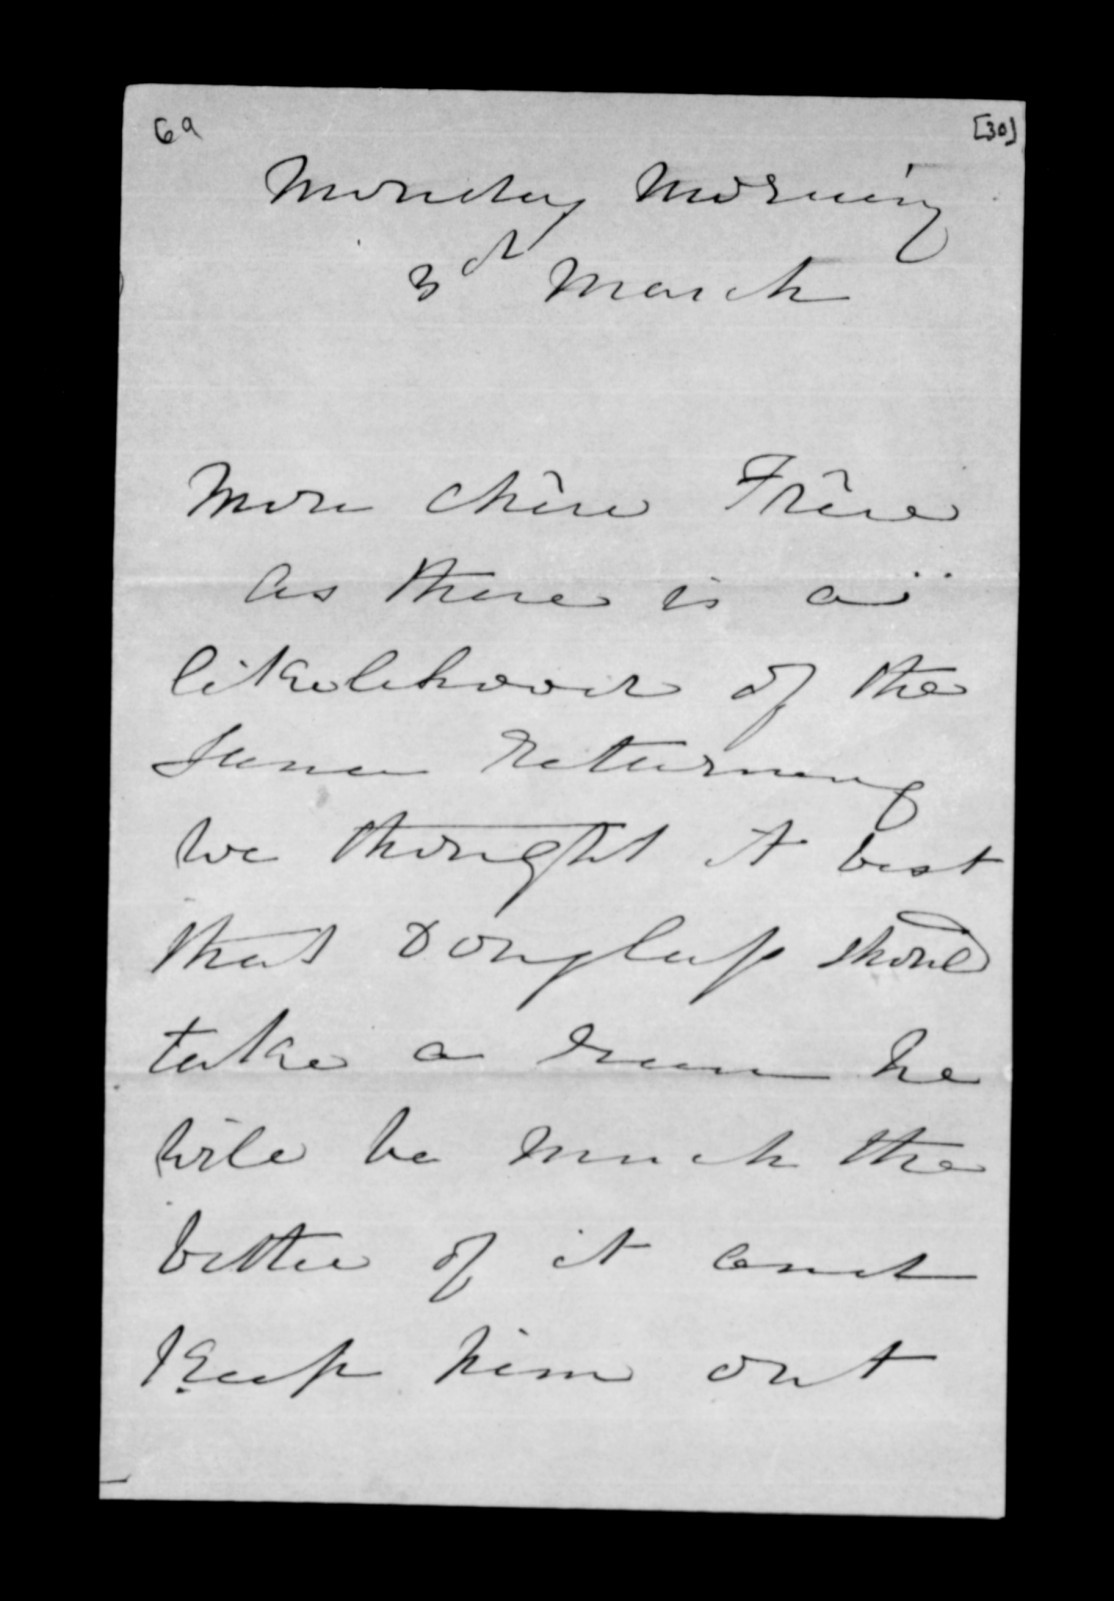 6a
[30]
Monday Morning
3d March
Mon chêre Frêre
As there is a
likelihood of the
Luna returning
we thought it best
that Douglass should
take a run he
will be much the
better of it and
keep him out